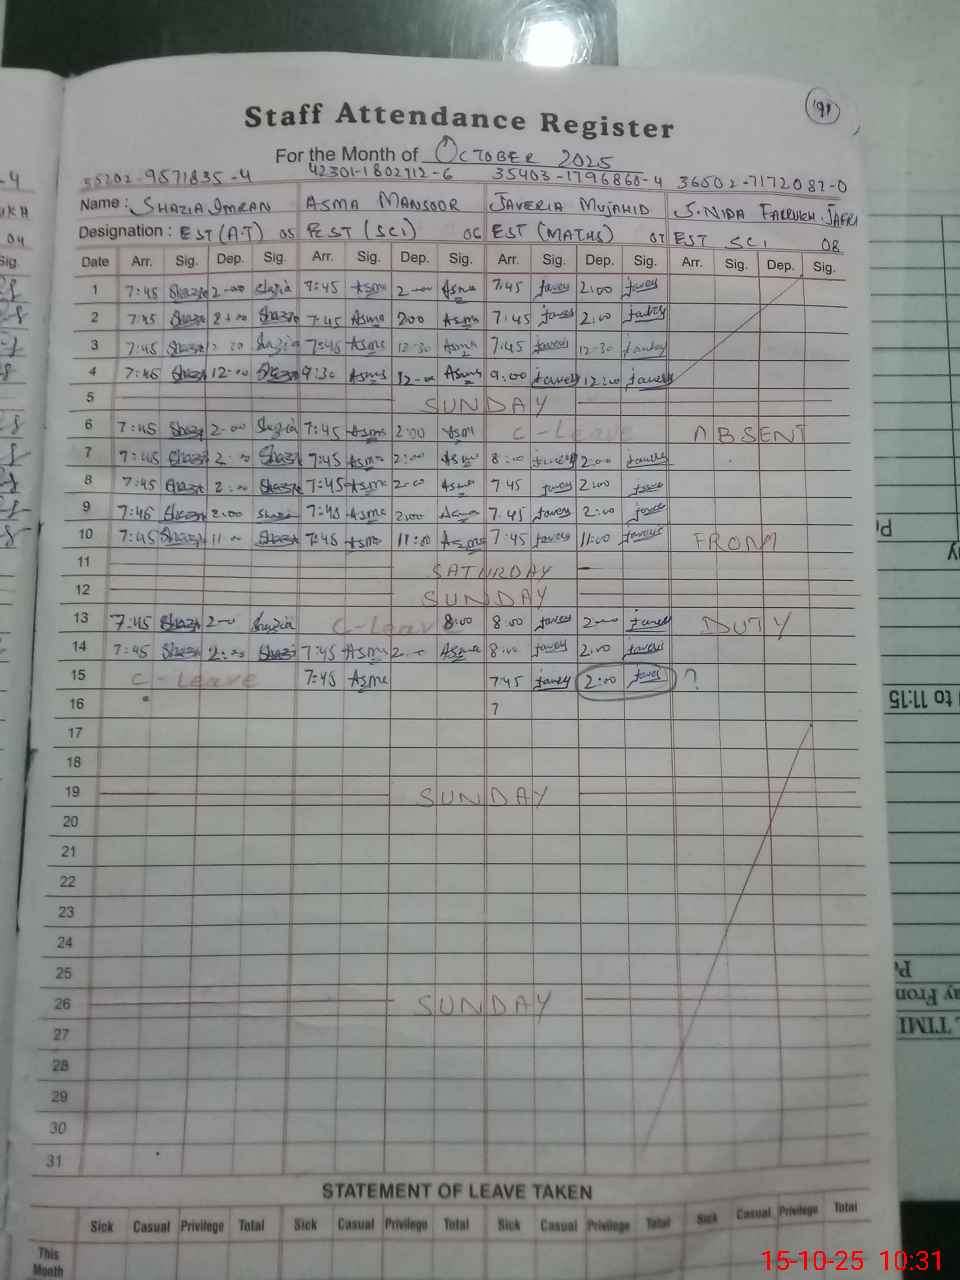 91
Staff Attendance Register
For the Month of OCTOBER 2025
55202-9571835-4 42301-1802712-6 35403-1796860-4 36502-7172087-0
Name: SHAZIA IMRAN ASMA MANSOOR JAVERIA MUJAHID S.NIDA FARRUKH JAFRI
Designation: EST (AT) 05 EST (SCI) 06 EST (MATHS) 07 EST SCI 08
Date Arr. Sig. Dep. Sig. Arr. Sig. Dep. Sig. Arr. Sig. Dep. Sig. Arr. Sig. Dep. Sig.
1 7:45 Shazia 2-00 Shazia 7:45 Asma 2-00 Asma 7:45 2:00
2 7:45 Shazia 2:00 Shazia 7:45 Asma 200 Asma 7:45 2:00
3 7:45 Shazia Shazia 7:45 Asma 12-30 Asma 7:45 12-30
4 7:45 Shazia 12-00 Shazia 9:30 Asma 12-00 Asma 9.00 12:00
5 SUNDAY
6 7:45 Shazia 2-00 Shazia 7:45 Asma 2:00 Asm C-Leave ABSENT
7 7:45 Shazia 2:00 Shazia 7:45 Asma 2:00 Asma 8:00 2:00
8 7:45 Shazia 2:00 Shazia 7:45 Asma 2:00 Asma 7 45 2:00
9 7:45 Shazia 2:00 Shazia 7:45 Asma 2:00 Asma 7.45 2:00
10 7:45 Shazia 11:00 Shazia 7:45 Asma 11:00 Asma 7:45 11:00 FROM
11 SATURDAY
12 SUNDAY
13 7:45 Shazia 2-00 Shazia C-Leave 8:00 8:00 2:00 DUTY
14 7:45 Shazia 2:00 Shazia 7:45 Asma Asma 8:00 2:00
15 C-Leave 7:45 Asma 7:45 2:00 ?
16 7
17
18
19 SUNDAY
20
21
22
23
24
25
26 SUNDAY
27
28
29
30
31
STATEMENT OF LEAVE TAKEN
Sick Casual Privilege Total Sick Casual Privilege Total Sick Casual Privilege Total Sick Casual Privilege Total
This
Month
to 11:15
ay From
TIMI
15-10-25 10:31